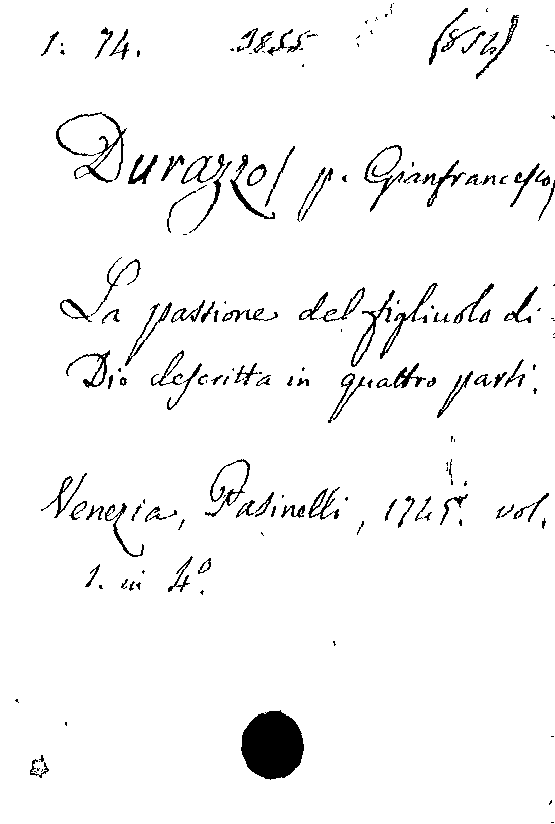 1. 74. 3855 (854)
Durazzo/ p. Gianfrancesco,
La passione del figliuolo di
Dio descritta in quattro parti.
Venezia, Pasinelli, 1745. vol.
1. in 4º.